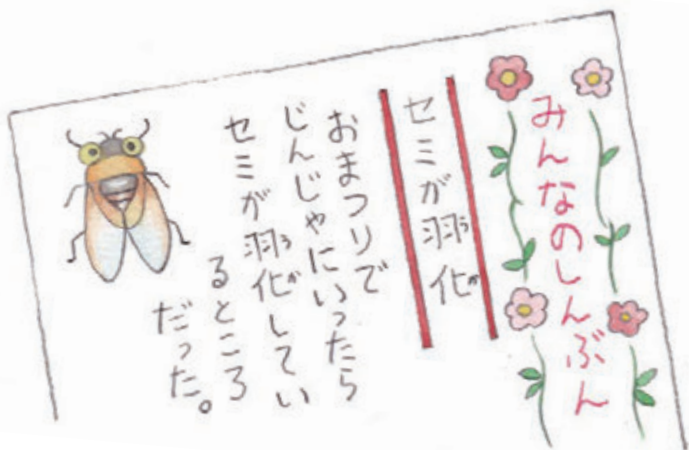 みんなのしんぶん
セミが羽化
おまつりで
じんじゃにいったら
セミが羽化してい
るところ
だった。